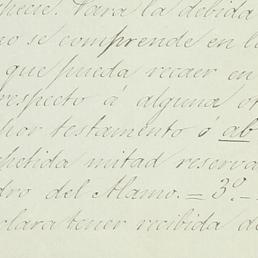 Para la debida
no se comprende en la
que pueda recaer en
respecto á alguna
por testamento ó ab
mitad reserva
dro del Alamo. = 3º. -
clara tener recibida de